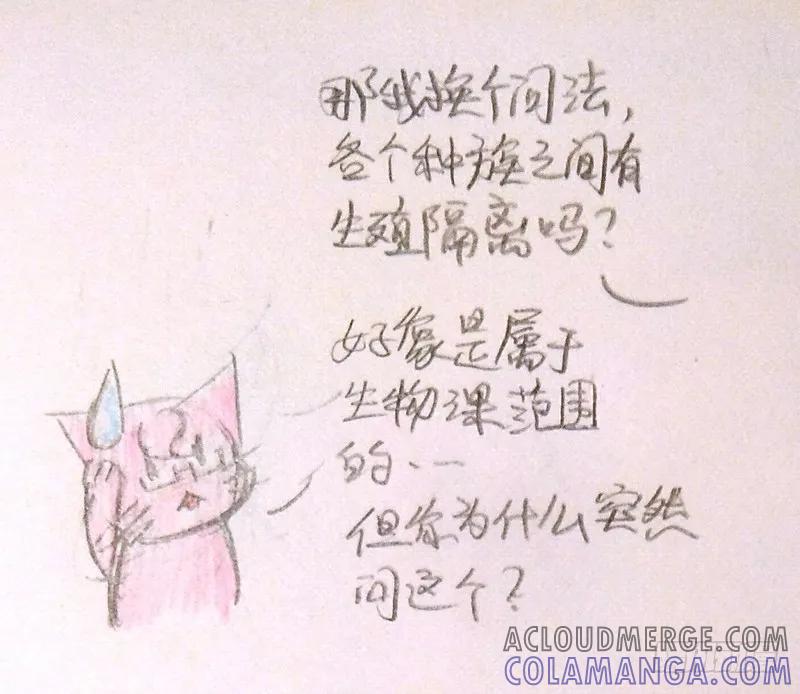 那我换个问法，
各个种族之间有
生殖隔离吗？
好像是属于
生物课范围
的……
但你为什么突然
问这个？
ACLOUDMERGE.COM
COLAMANGA.COM